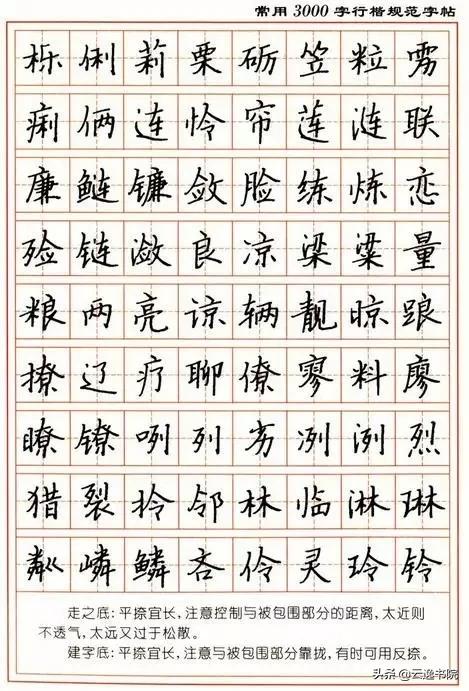 常用3000字行楷规范字帖
栎俐莉栗砺笠粒雳
痢俩连怜帘莲涟联
廉鲢镰敛脸练炼恋
殓链潋良凉梁粱量
粮两亮谅辆靓晾踉
撩辽疗聊僚寥料廖
瞭镣咧列劣冽洌烈
猎裂拎邻林临淋琳
粼嶙鳞吝伶灵玲铃
走之底:平捺宜长,注意控制与被包围部分的距离,太近则
不透气,太远又过于松散。
建字底:平捺宜长,注意与被包围部分靠拢,有时可用反捺。
头条@云逸书院